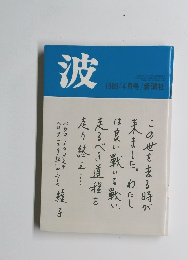 波
1985/4月号/新潮社
この世を去る時が
来ました。わたし
は良い戦いを戦い、
走るべき道程を
走り終え…
綾子